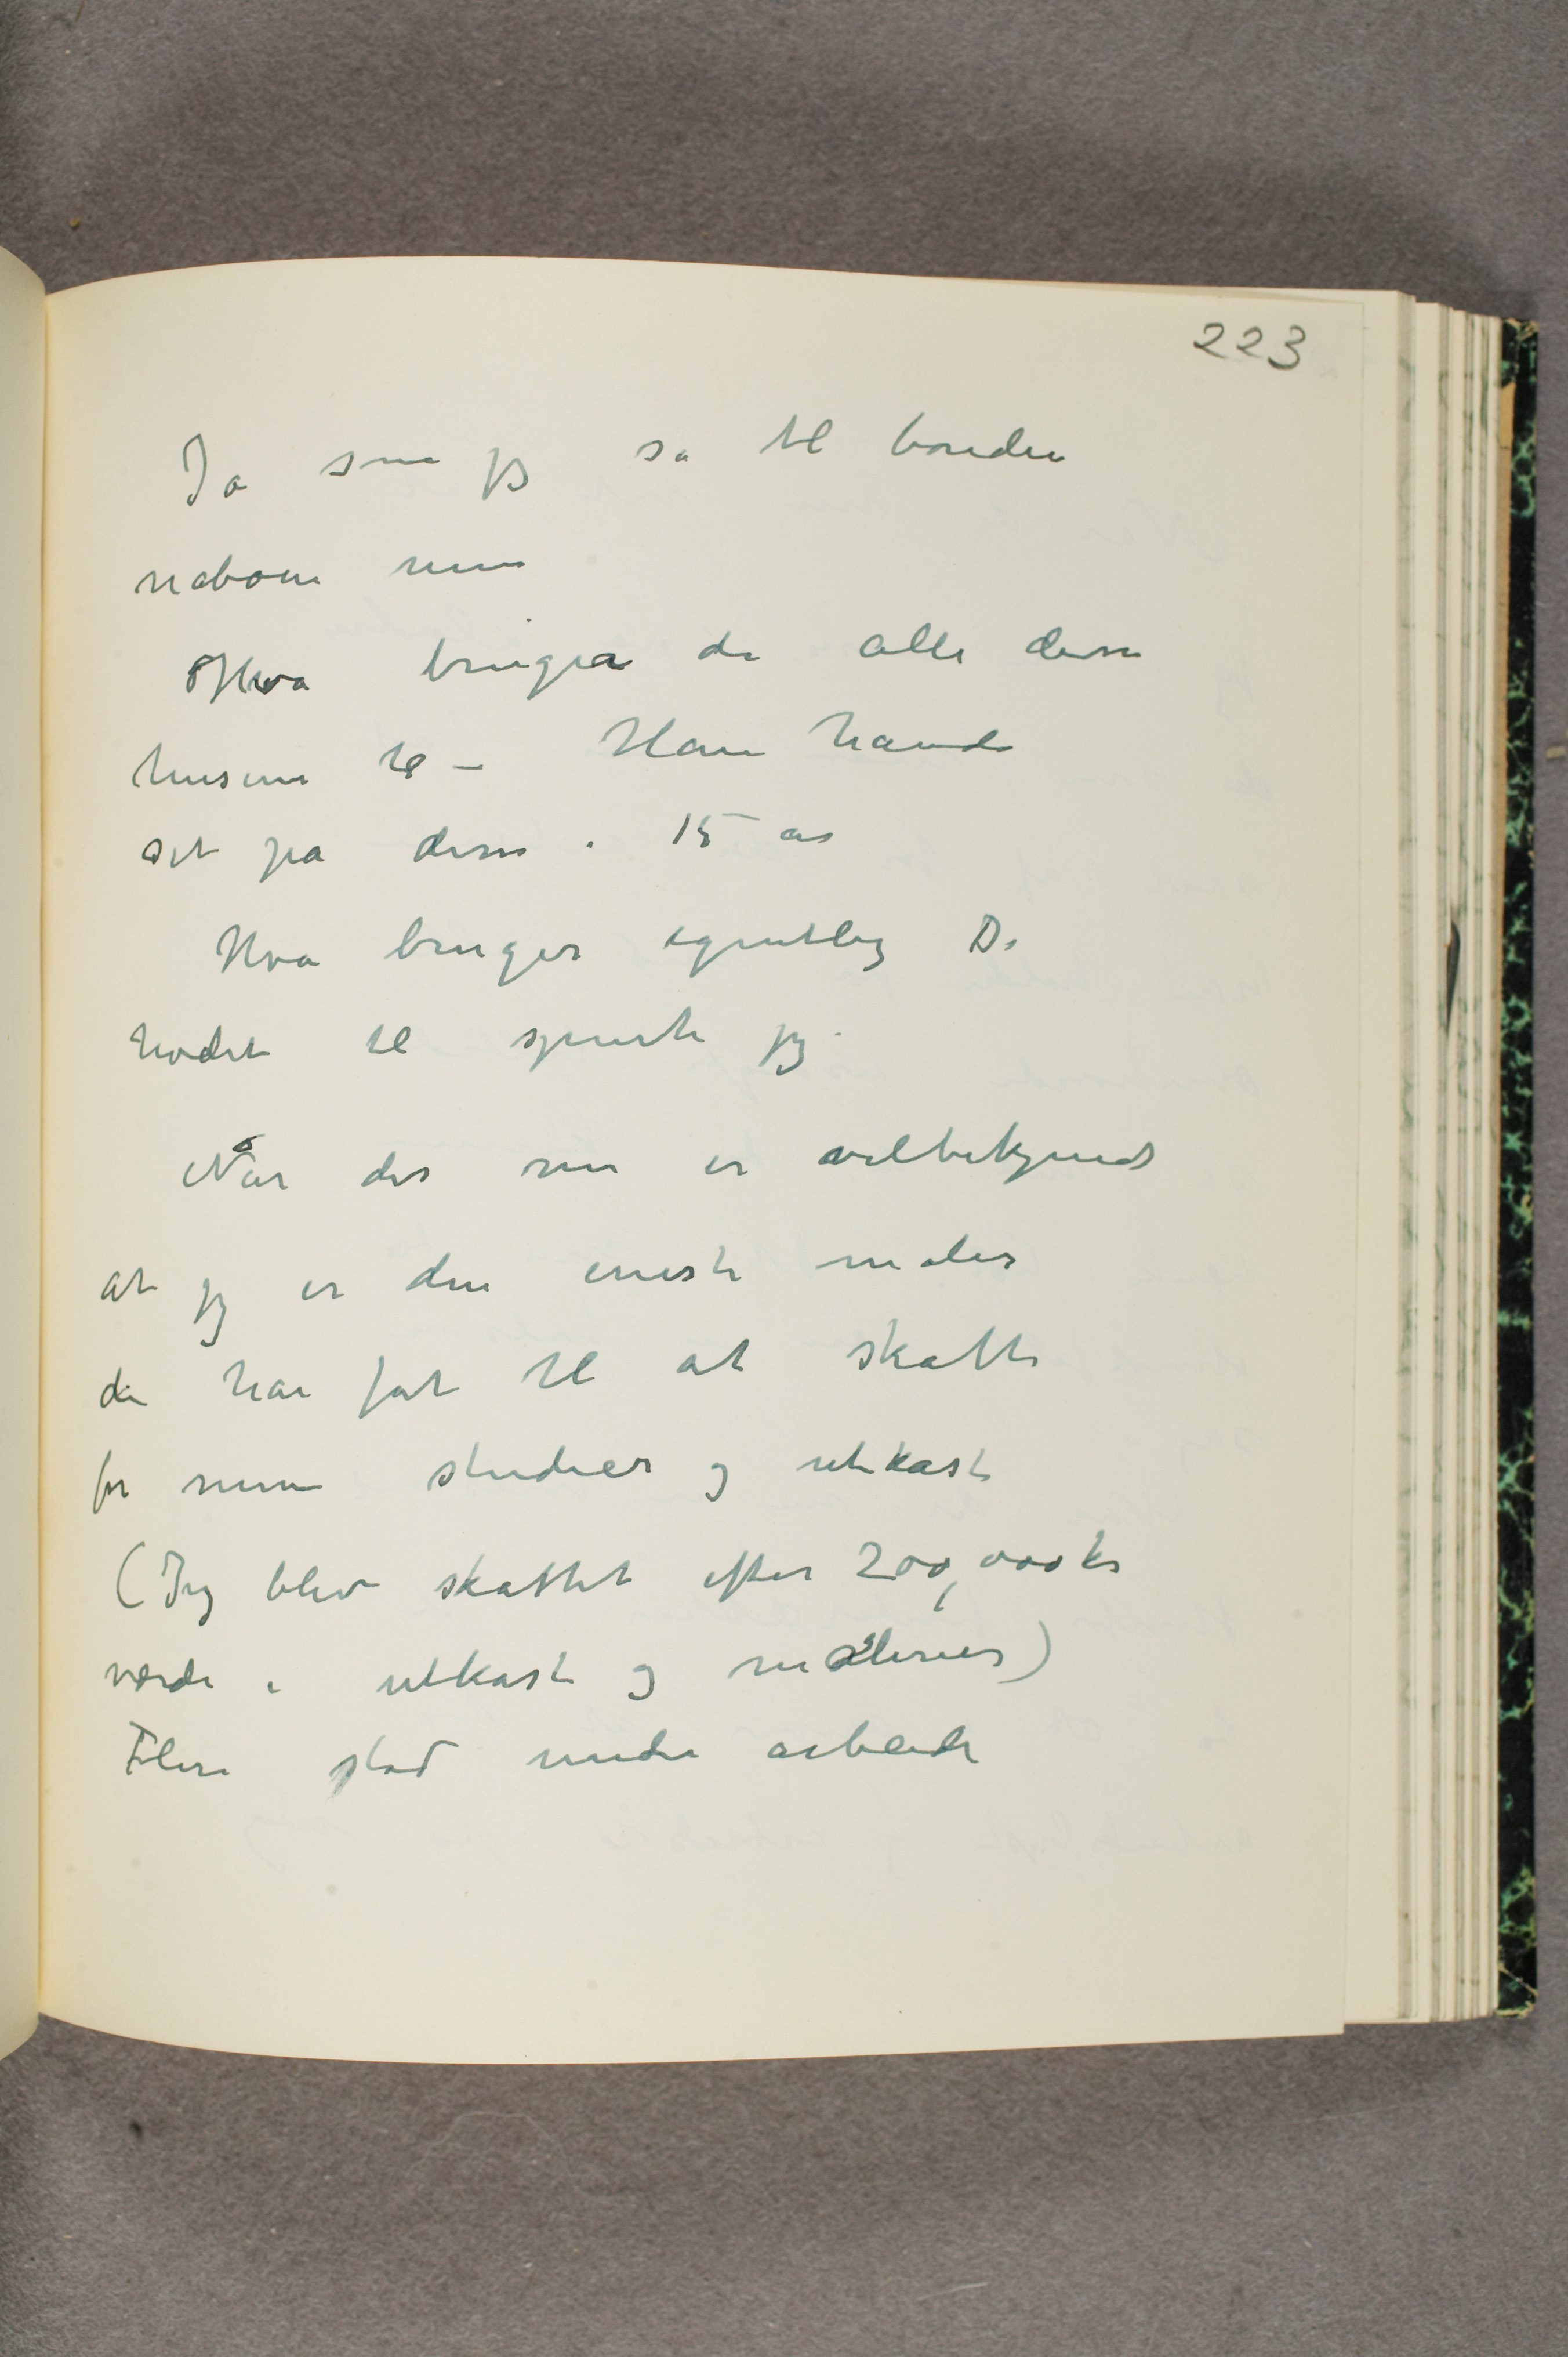 223
Ja som jeg sa til bonden
naboen min
Hva bruger de alle disse
husene til – Han havde
set på disse i 15 år
Hva bruger egentlig De
hodet til spurte jeg.
Når det nu er velbekjendt
at jeg er den eneste maler
de har fåt til at skatte
for mine studier og utkast
(Jeg blev skattet efter 200,000 kr
værdi i utkast og malerier)
Flere stod under arbeide